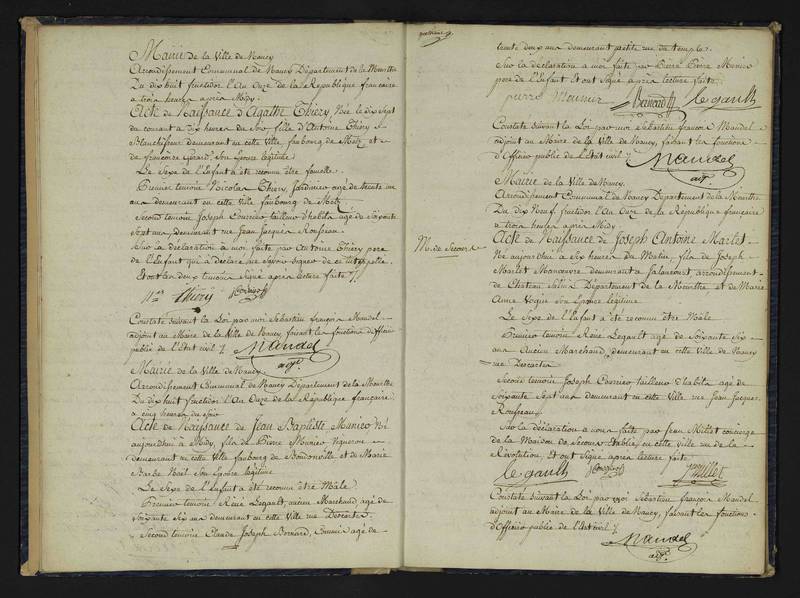 Mairie de la Ville de Nancy
Arrondissement Communal de Nancy Département de la Meurthe
Du dix huit fructidor l'An Onze de la République francaise
a trois heures après Midy.
Acte de Naissance d'Agathe Thiery, Née le dix Sept
du courant a dix heures du soir fille d'Antoine Thiery
Blanchisseur demeurant en cette Ville faubourg de Metz et
de francoise Gerard, son Epouse légitime
Le Sexe de l'Enfant a été reconnu être femelle.
Premier temoin Nicolas Thiery, Jardinier agé de trente un
ans demeurant en cette Ville faubourg de Metz
Second temoin Joseph Courrier tailleur d'habits agé de soixante
Sept ans, demeurant rue Jean Jacques Rousseau.
Sur la déclaration à moi faite par Antoine Thiery pere
de l'Enfant qui a déclaré ne savoir signer de ce interpellé.
Et ont les deux temoins Signé après lecture faite
Thiery
Constaté suivant la Loi par moi Sébastien françois Mandel
adjoint au Maire de la Ville de Nancy, faisant les fonctions d'officier
public de l'Etat civil
Mandel
adjt.
Mairie de la Ville de Nancy
Arrondissement Communal de Nancy Département de la Meurthe
Du dix huit fructidor l'An Onze de la République française
a cinq heures du soir
Acte de Naissance de Jean Baptiste Munier Né
aujourd'hui à Midy, fils de Pierre Munier Vigneron
demeurant en cette Ville faubourg de Boudonville et de Marie
Barbe Noël Son Epouse légitime
Le Sexe de l'Enfant a été reconnu être Mâle.
Premier temoin René Legault, ancien Marchand agé de
Soixante Six ans demeurant en cette Ville rue Descartes.
Second temoin Claude Joseph Bernard, Commis agé de
trente deux ans demeurant petite rue du temple.
Sur la déclaration a moi faite par Pierre Munier
pere de l'Enfant Et ont Signé après lecture faite
pierre Meunier legault
Constaté suivant la Loi par moi Sébastien françois Mandel
adjoint au Maire de la Ville de Nancy, faisant les fonctions
d'Officier public de l'Etat civil
Mandel
adjt.
Mairie de la Ville de Nancy.
Arrondissement Communal de Nancy Département de la Meurthe
Du dix Neuf fructidor l'An Onze de la République française
a trois heures après Midy.
M. de Secours
Acte de Naissance de Joseph Antoine Marlet
Né aujourd'hui a six heures du Matin, fils de Joseph
Marlet Manœuvre demeurant a Jalaucourt, arrondissement
de Château Salin Département de la Meurthe et de Marie
Anne Vogin Son Epouse légitime
Le Sexe de l'Enfant a été reconnu être Mâle
Premier temoin René Legault agé de Soixante Six
ans Ancien Marchand, demeurant en cette Ville de Nancy
rue Descartes
Second temoin Joseph Courrier tailleur d'habits agé de
soixante Sept ans demeurant en cette Ville rue Jean Jacques
Rousseau.
Sur la déclaration à nous faite par Jean Millet concierge
de la Maison de Secours établie en cette ville rue de la
Révolution, Et ont Signé après lecture faite
legault Millet
Constaté suivant la Loi par moi Sébastien françois Mandel
adjoint au Maire de la Ville de Nancy, faisant les fonctions
d'Officier public de l'Etat civil
Mandel
adjt.